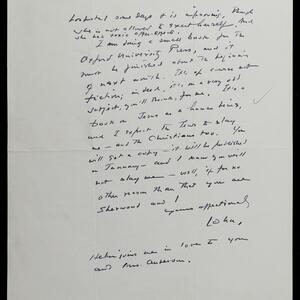 hospital some days & is improving, though
she is not allowed to exert herself. And
she has toxic after-effects.
I am doing a small book for the
Oxford University Press, and it
must be finished about the beginning
of next month. It's, of course not
fiction; indeed, it's, a way off
subject, you'll think, for me. It's a
book on Jesus as a human being,
and I expect the Jews to slay
me — and the Christians too. You
will get a copy — it will be published
in January — and I know you will
not slay me — well, if for no
other reason than that you are
Sherwood and I
yours affectionately
John.
Helen joins me in love to you
and Mrs. Anderson.